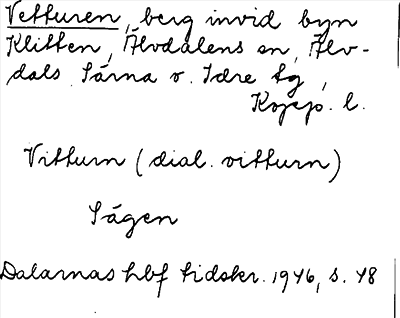 Vetturen, berg invid byn
Klitten, Älvdalens sn, Älv-
dals Särna o. Idre tg,
Kopp. l.
Vitturn (dial. vitturn)
Sägen
Dalarnas hbf tidskr. 1946, s. 48